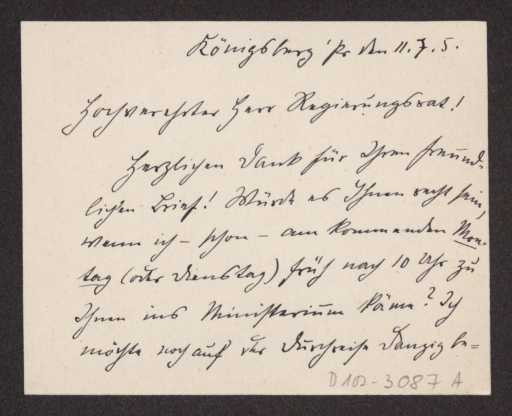 Königsberg Pr den 11.7.5.
Hochverehrter Herr Regierungsrat!
Herzlichen Dank für Ihren freund-
lichen Brief! Würde es Ihnen recht sein,
wenn ich – schon – am kommenden Mon-
tag (oder Dienstag) früh nach 10 Uhr zu
Ihnen ins Ministerium käme? Ich
möchte noch auf der Durchreise Danzig be=
D 102-3087 A